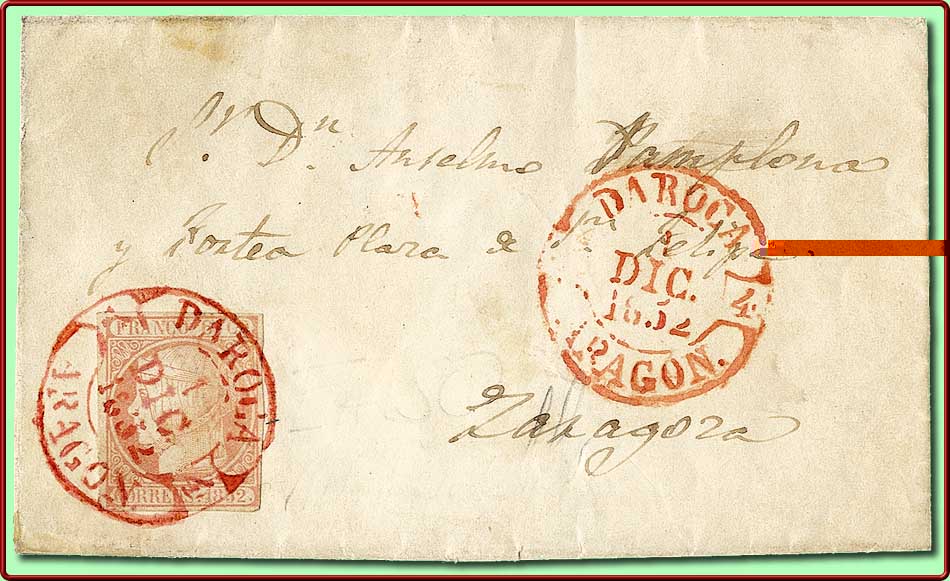 Sr. Dn. Anselmo Pamplona
y Fortea Plaza de Sn. Felipe.
Zaragoza
DAROCA
1
DIC.
1852
4
ARAGON.
FRANCO
CORREOS. 1852.
DAROCA
1
DIC
1852
ARAGON